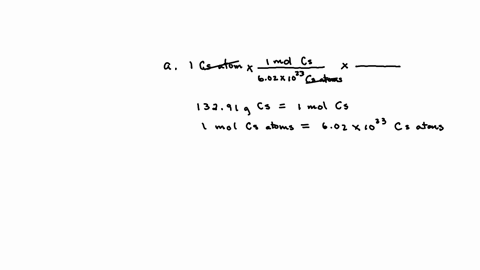 a. 1 Cs atom × 1 mol Cs / 6.02 × 10²³ Cs atoms × ____
132.91 g Cs = 1 mol Cs
1 mol Cs atoms = 6.02 × 10²³ Cs atoms